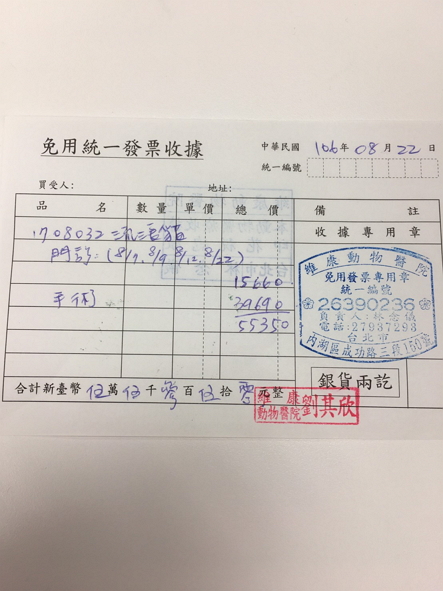 免用統一發票收據
中華民國 106年 08月 22日
統一編號
買受人: 地址:
品名 數量 單價 總價 備註
收據專用章
1708032 三花
門診: (8/7, 8/9 8/12, 8/22)
15660
手術 39690
55350
維康動物醫院
免用發票專用章
統一編號
26390236
負責人:林
電話:27937293
台北市
內湖區成功路三段150號
合計新臺幣 伍萬伍千零百伍拾零元整
銀貨兩訖
維康動物醫院 劉其欣